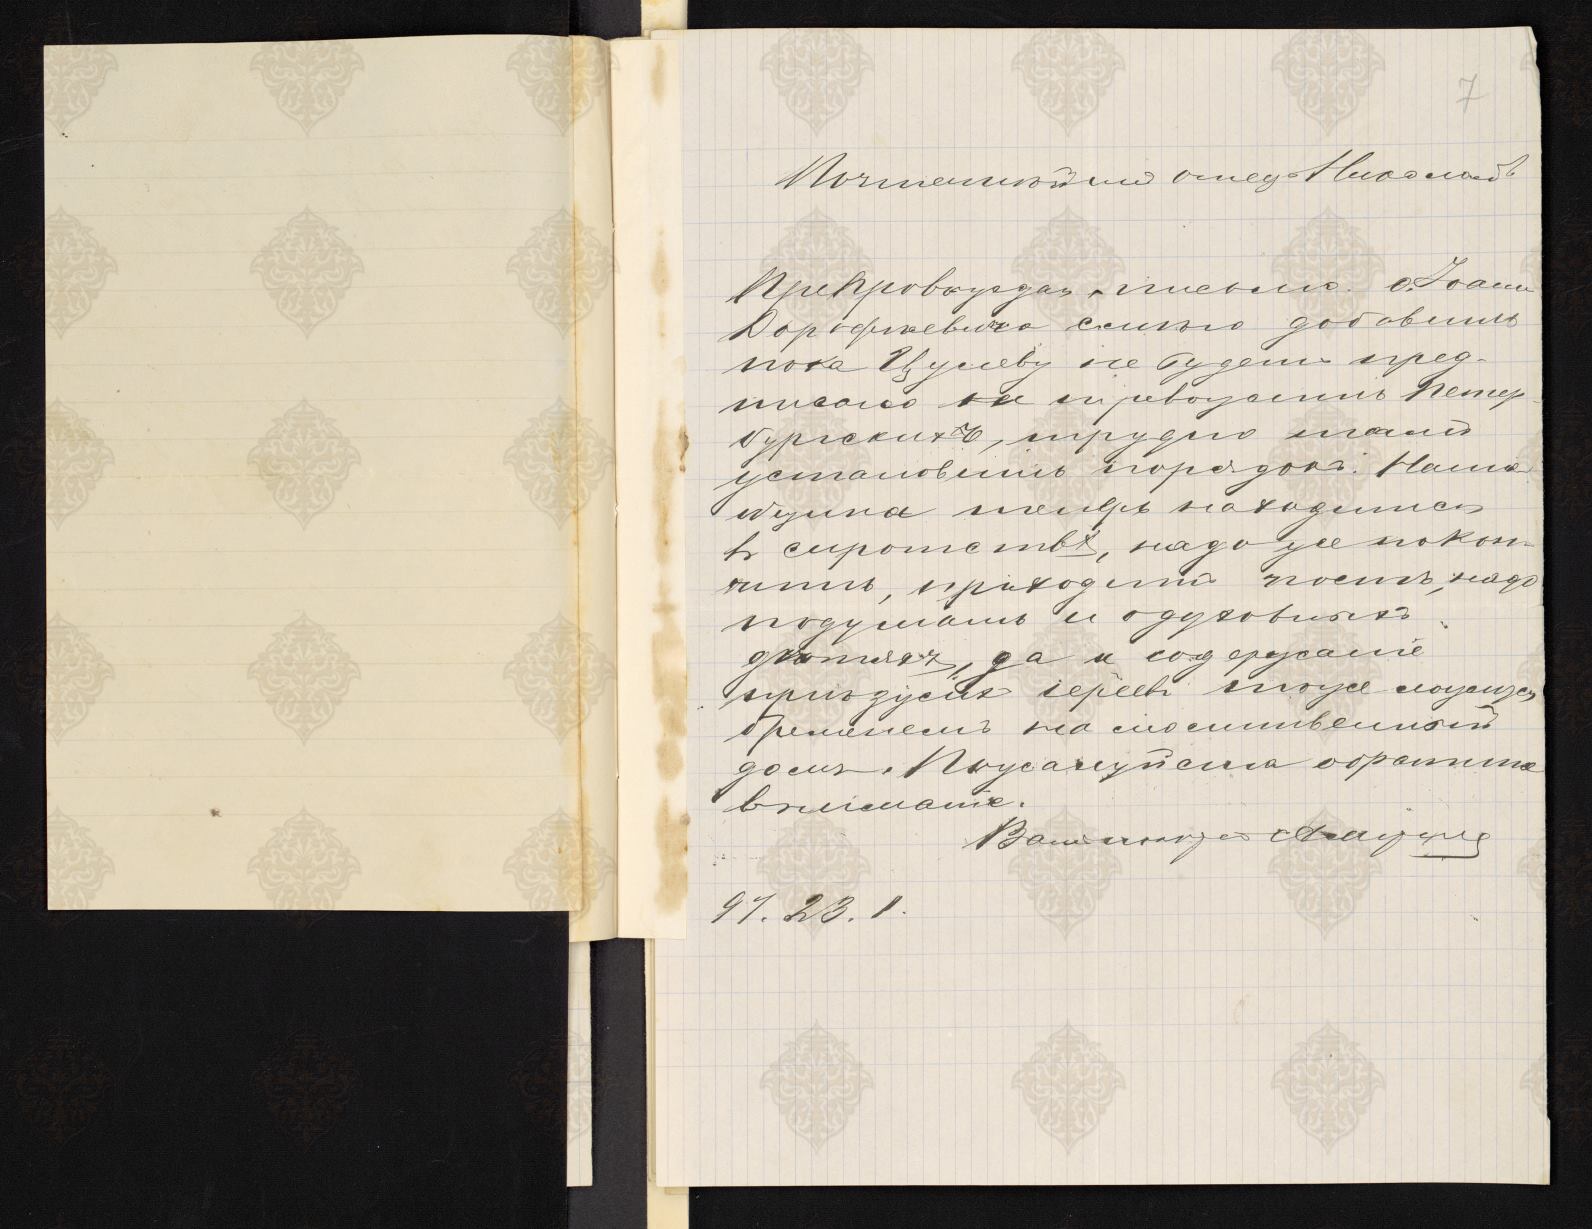 7
Почтеннѣйшій отецъ Николай
Препровождая письмо о. Іоанн
Дорофеевича смѣю добавить
пока Цулеву не будетъ пред-
писано не тревожить Петер-
бургскихъ, трудно тамъ
установить порядокъ. Наша
община теперь находится
в сиротствѣ, надо уже покон-
чить, приходитъ постъ, надо
подумать и о духовныхъ
дѣтяхъ, да и содержаніе
приѣзжихъ іереевъ тоже ложится
бременемъ на молитвенный
домъ. Пожалуйста обратите
вниманіе.
Вашъ покорн
97. 23. 1.